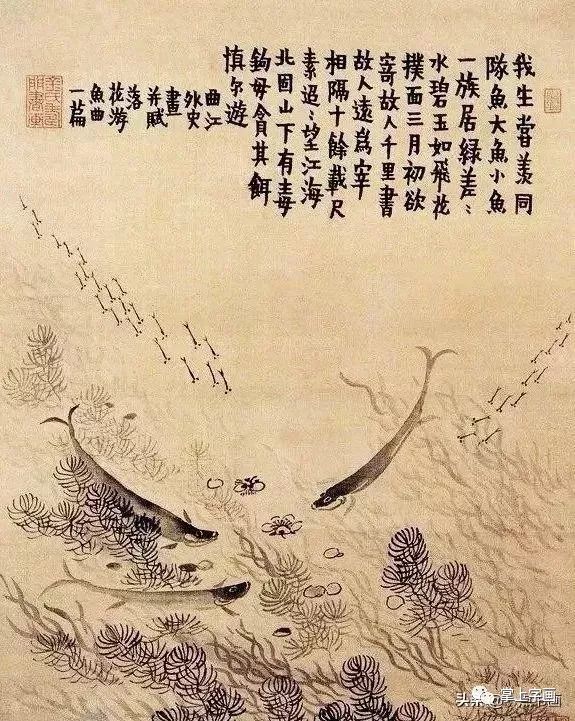 我生嘗羨同
隊魚大魚小魚
一族居緑差〻
水碧玉如飛花
撲面三月初欲
寄故人千里書
故人遠爲宰
相隔十餘載尺
素迢〻望江海
北固山下有毒
鈎毋貪其餌
慎尔遊
曲江
外史
畫
并賦
落
花游
魚曲
一篇
头条
掌上字画